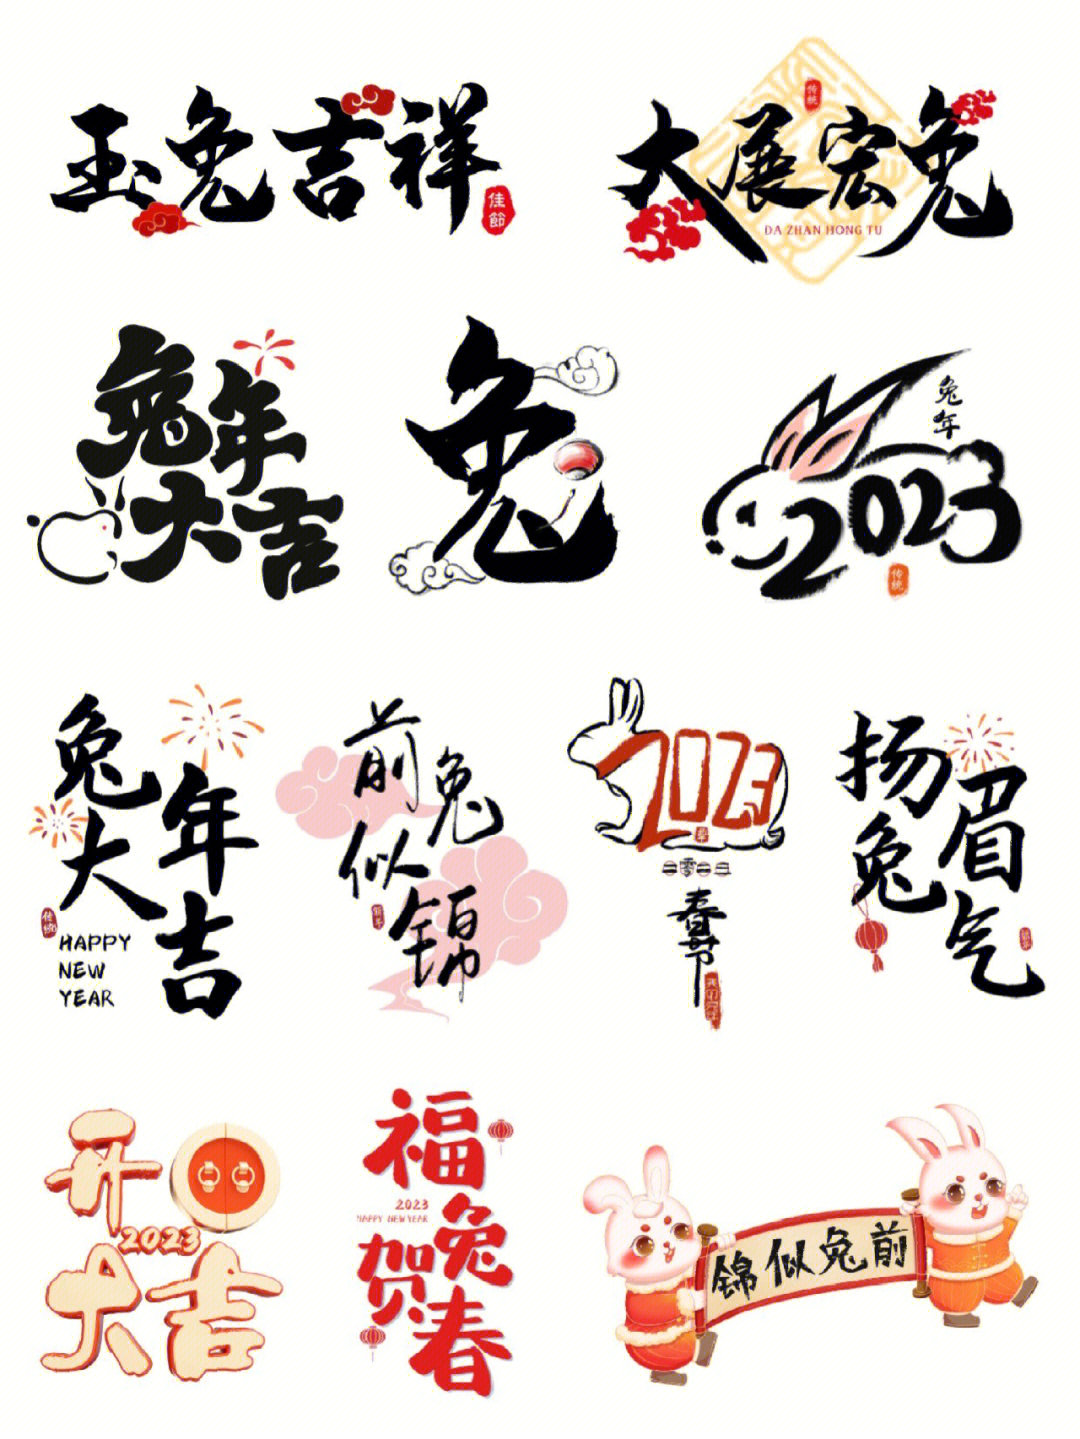 玉兔吉祥
佳節
传统
大展宏兔
DA ZHAN HONG TU
兔年
大吉
兔
兔年
2023
传统
兔年
大吉
传统
HAPPY
NEW
YEAR
前兔
似锦
2023
二零二三
春节
扬眉
兔气
开口
2023
大吉
福兔
2023
HAPPY NEW YEAR
贺春
锦似兔前